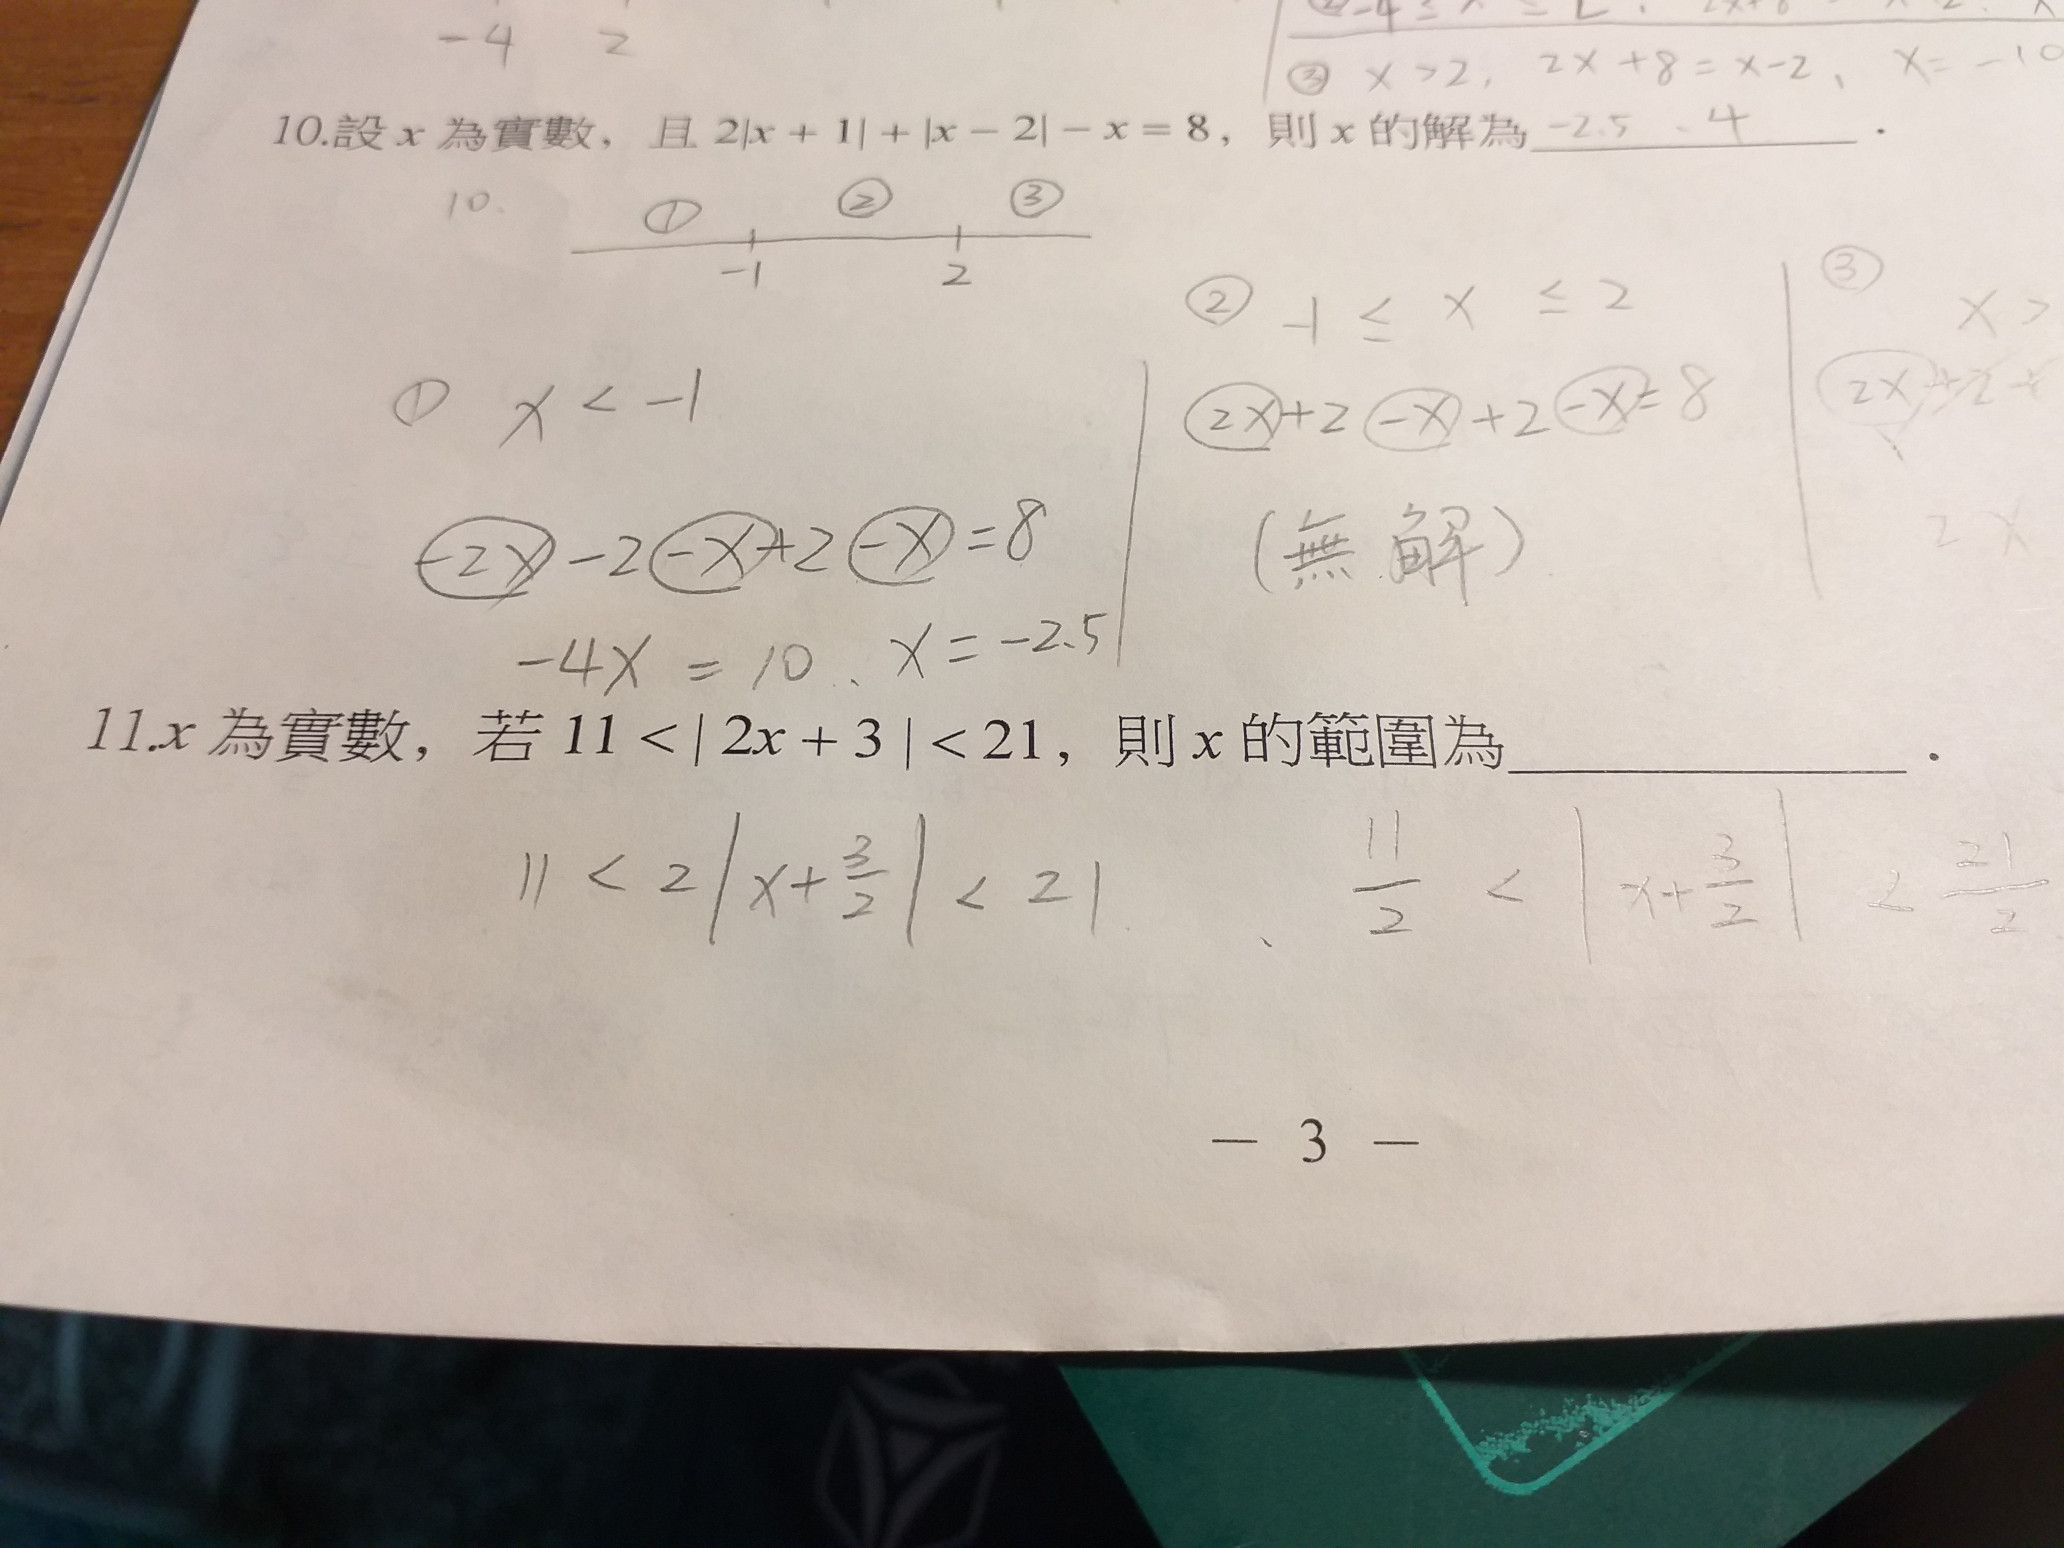 -4 2
③ x>2, 2x+8=x-2、 x=-10
10.設 x 為實數，且 2|x + 1| + |x − 2| − x = 8，則 x 的解為 -2.5 、4 .
10. ① ② ③
-1 2
② -1 ≤ x ≤ 2
③ x >
① x < -1
2x+2-x+2-x=8
2x+2+
-2x-2-x+2-x=8
(無解)
2x
-4x = 10、x = -2.5
11.x 為實數，若 11 < | 2x + 3 | < 21，則 x 的範圍為 .
11 < 2|x+3/2| < 21 、 11/2 < |x+3/2| < 21/2
− 3 −